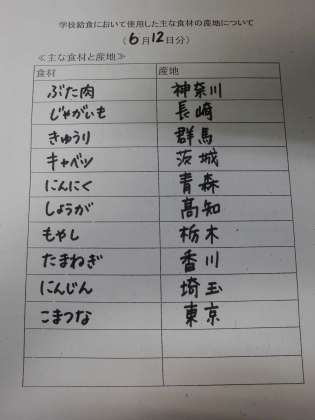 学校給食において使用した主な食材の産地について
(6月12日分)
≪主な食材と産地≫
食材 産地
ぶた肉 神奈川
じゃがいも 長崎
きゅうり 群馬
キャベツ 茨城
にんにく 青森
しょうが 高知
もやし 栃木
たまねぎ 香川
にんじん 埼玉
こまつな 東京